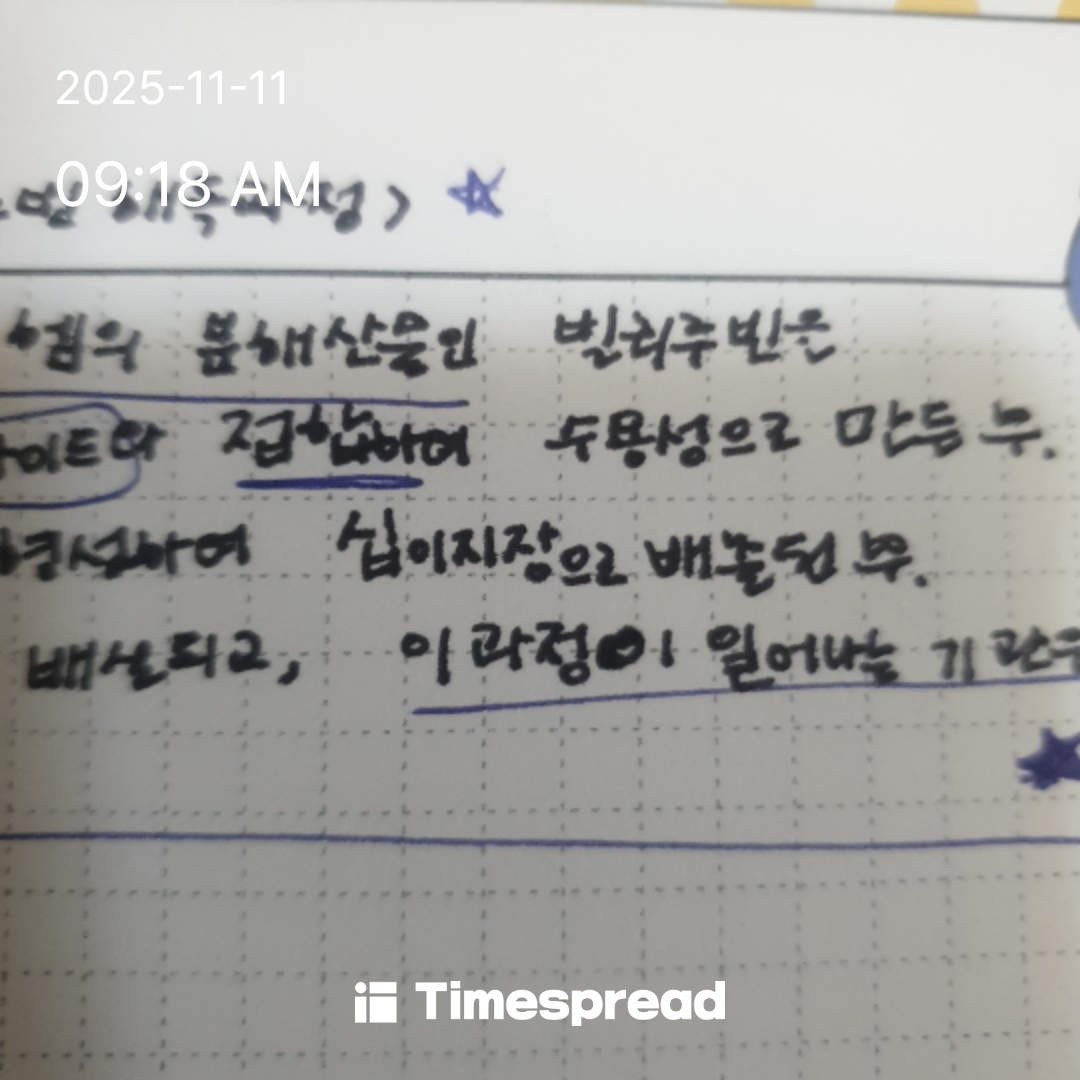 2025-11-11
09:18 AM
헴의 분해산물인 빌리루빈은
이트와 접합하여 수용성으로 만든 후.
형성하여 십이지장으로 배출된 후.
배설되고, 이 과정이 일어나는 기관
Timespread